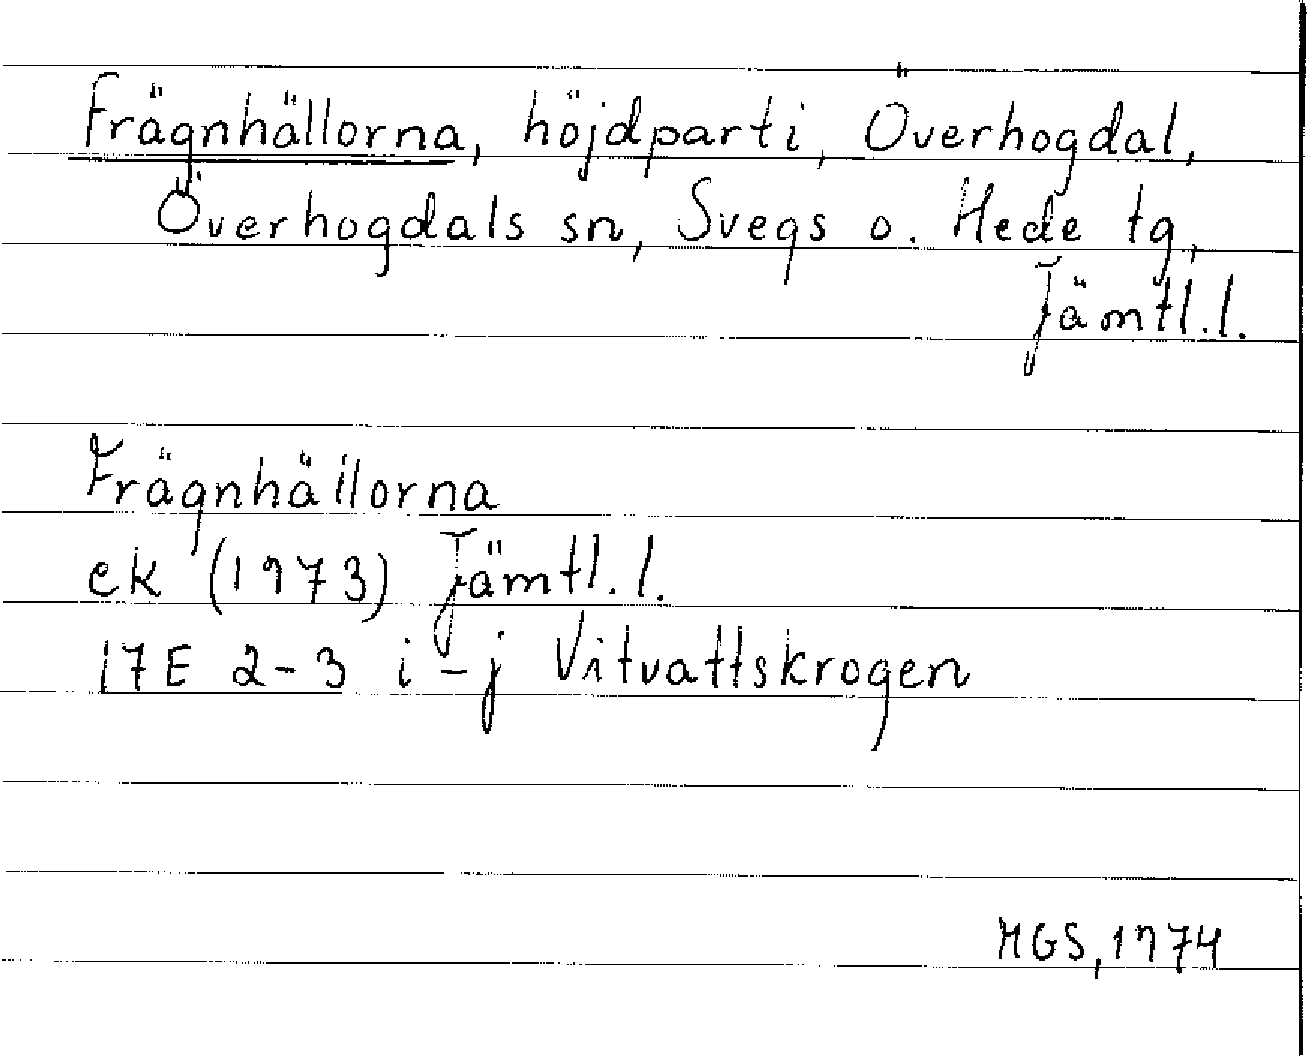 Frägnhällorna, höjdparti, Överhogdal,
Överhogdals sn, Svegs o. Hede tg,
Jämtl.l.
Frägnhällorna
ek (1973) Jämtl.l.
17E 2-3 i-j Vitvattskrogen
MGS, 1974